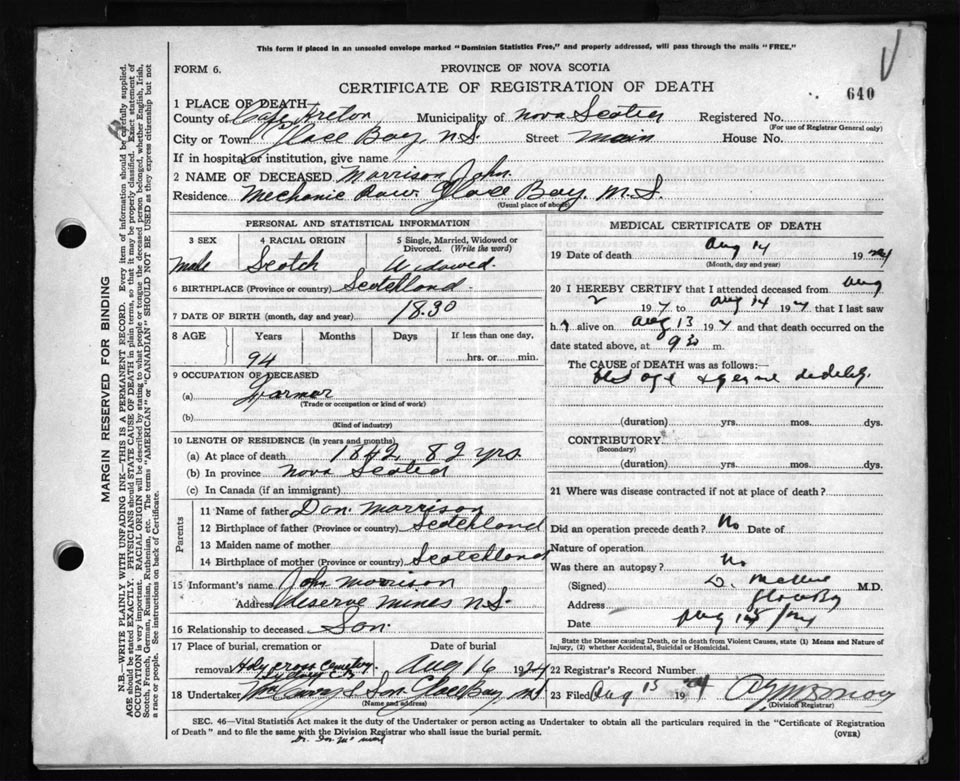 This form if placed in an unsealed envelope marked "Dominion Statistics Free," and properly addressed, will pass through the mails "FREE."
FORM 6.
PROVINCE OF NOVA SCOTIA
CERTIFICATE OF REGISTRATION OF DEATH
640
1 PLACE OF DEATH
County of Cape Breton Municipality of Nova Scotia Registered No.
(For use of Registrar General only)
City or Town Glace Bay, N.S Street Main House No.
If in hospital or institution, give name
2 NAME OF DECEASED Morrison John.
Residence Mechanic Row Glace Bay, N.S.
(Usual place of abode)
MARGIN RESERVED FOR BINDING
N.B.—WRITE PLAINLY WITH UNFADING INK—THIS IS A PERMANENT RECORD. Every item of information should be carefully supplied.
AGE should be stated EXACTLY. PHYSICIANS should STATE CAUSE OF DEATH in plain terms, so that it may be properly classified. Exact statement of
OCCUPATION is very important. RACIAL ORIGIN will be described by stating to what people or tongue the deceased person belonged, whether English, Irish,
Scotch, French, German, Russian, Ruthenian, etc. The terms "AMERICAN" or "CANADIAN" SHOULD NOT BE USED as they express citizenship but not
a race or people. See instructions on back of Certificate.
PERSONAL AND STATISTICAL INFORMATION
3 SEX
Male
4 RACIAL ORIGIN
Scotch
5 Single, Married, Widowed or
Divorced. (Write the word)
Widowed.
6 BIRTHPLACE (Province or country) Scotchland
7 DATE OF BIRTH (month, day and year) 1830
8 AGE Years Months Days If less than one day.
94 hrs. or min.
9 OCCUPATION OF DECEASED
(a) Farmer
(Trade or occupation or kind of work)
(b)
(Kind of industry)
10 LENGTH OF RESIDENCE (in years and months)
(a) At place of death 1842 82 yrs
(b) In province Nova Scotia
(c) In Canada (if an immigrant)
Parents
11 Name of father Don. Morrison
12 Birthplace of father (Province or country) Scotchland
13 Maiden name of mother
14 Birthplace of mother (Province or country) Scotchland
15 Informant's name John Morrison
Address Reserve Mines N.S.
16 Relationship to deceased Son.
17 Place of burial, cremation or
removal Holy Cross Cemetery
Date of burial
Aug 16 1924
18 Undertaker & Son. Glace Bay, NS
(Name and address)
MEDICAL CERTIFICATE OF DEATH
19 Date of death Aug 14 1924
(Month, day and year)
20 I HEREBY CERTIFY that I attended deceased from Aug
2 1924 to Aug 14 1924 that I last saw
h alive on Aug 13 1924 and that death occurred on the
date stated above, at 930 m.
The CAUSE of DEATH was as follows:—
Old age
(duration) yrs. mos. dys.
CONTRIBUTORY
(Secondary)
(duration) yrs. mos. dys.
21 Where was disease contracted if not at place of death?
Did an operation precede death? No Date of
Nature of operation
Was there an autopsy? No
(Signed) D. M.D.
Address Glace Bay
Date Aug 15/24
State the Disease causing Death, or in death from Violent Causes, state (1) Means and Nature of
Injury, (2) whether Accidental, Suicidal or Homicidal.
22 Registrar's Record Number
23 Filed Aug 15 1924
(Division Registrar)
SEC. 46—Vital Statistics Act makes it the duty of the Undertaker or person acting as Undertaker to obtain all the particulars required in the "Certificate of Registration
of Death" and to file the same with the Division Registrar who shall issue the burial permit.
(OVER)